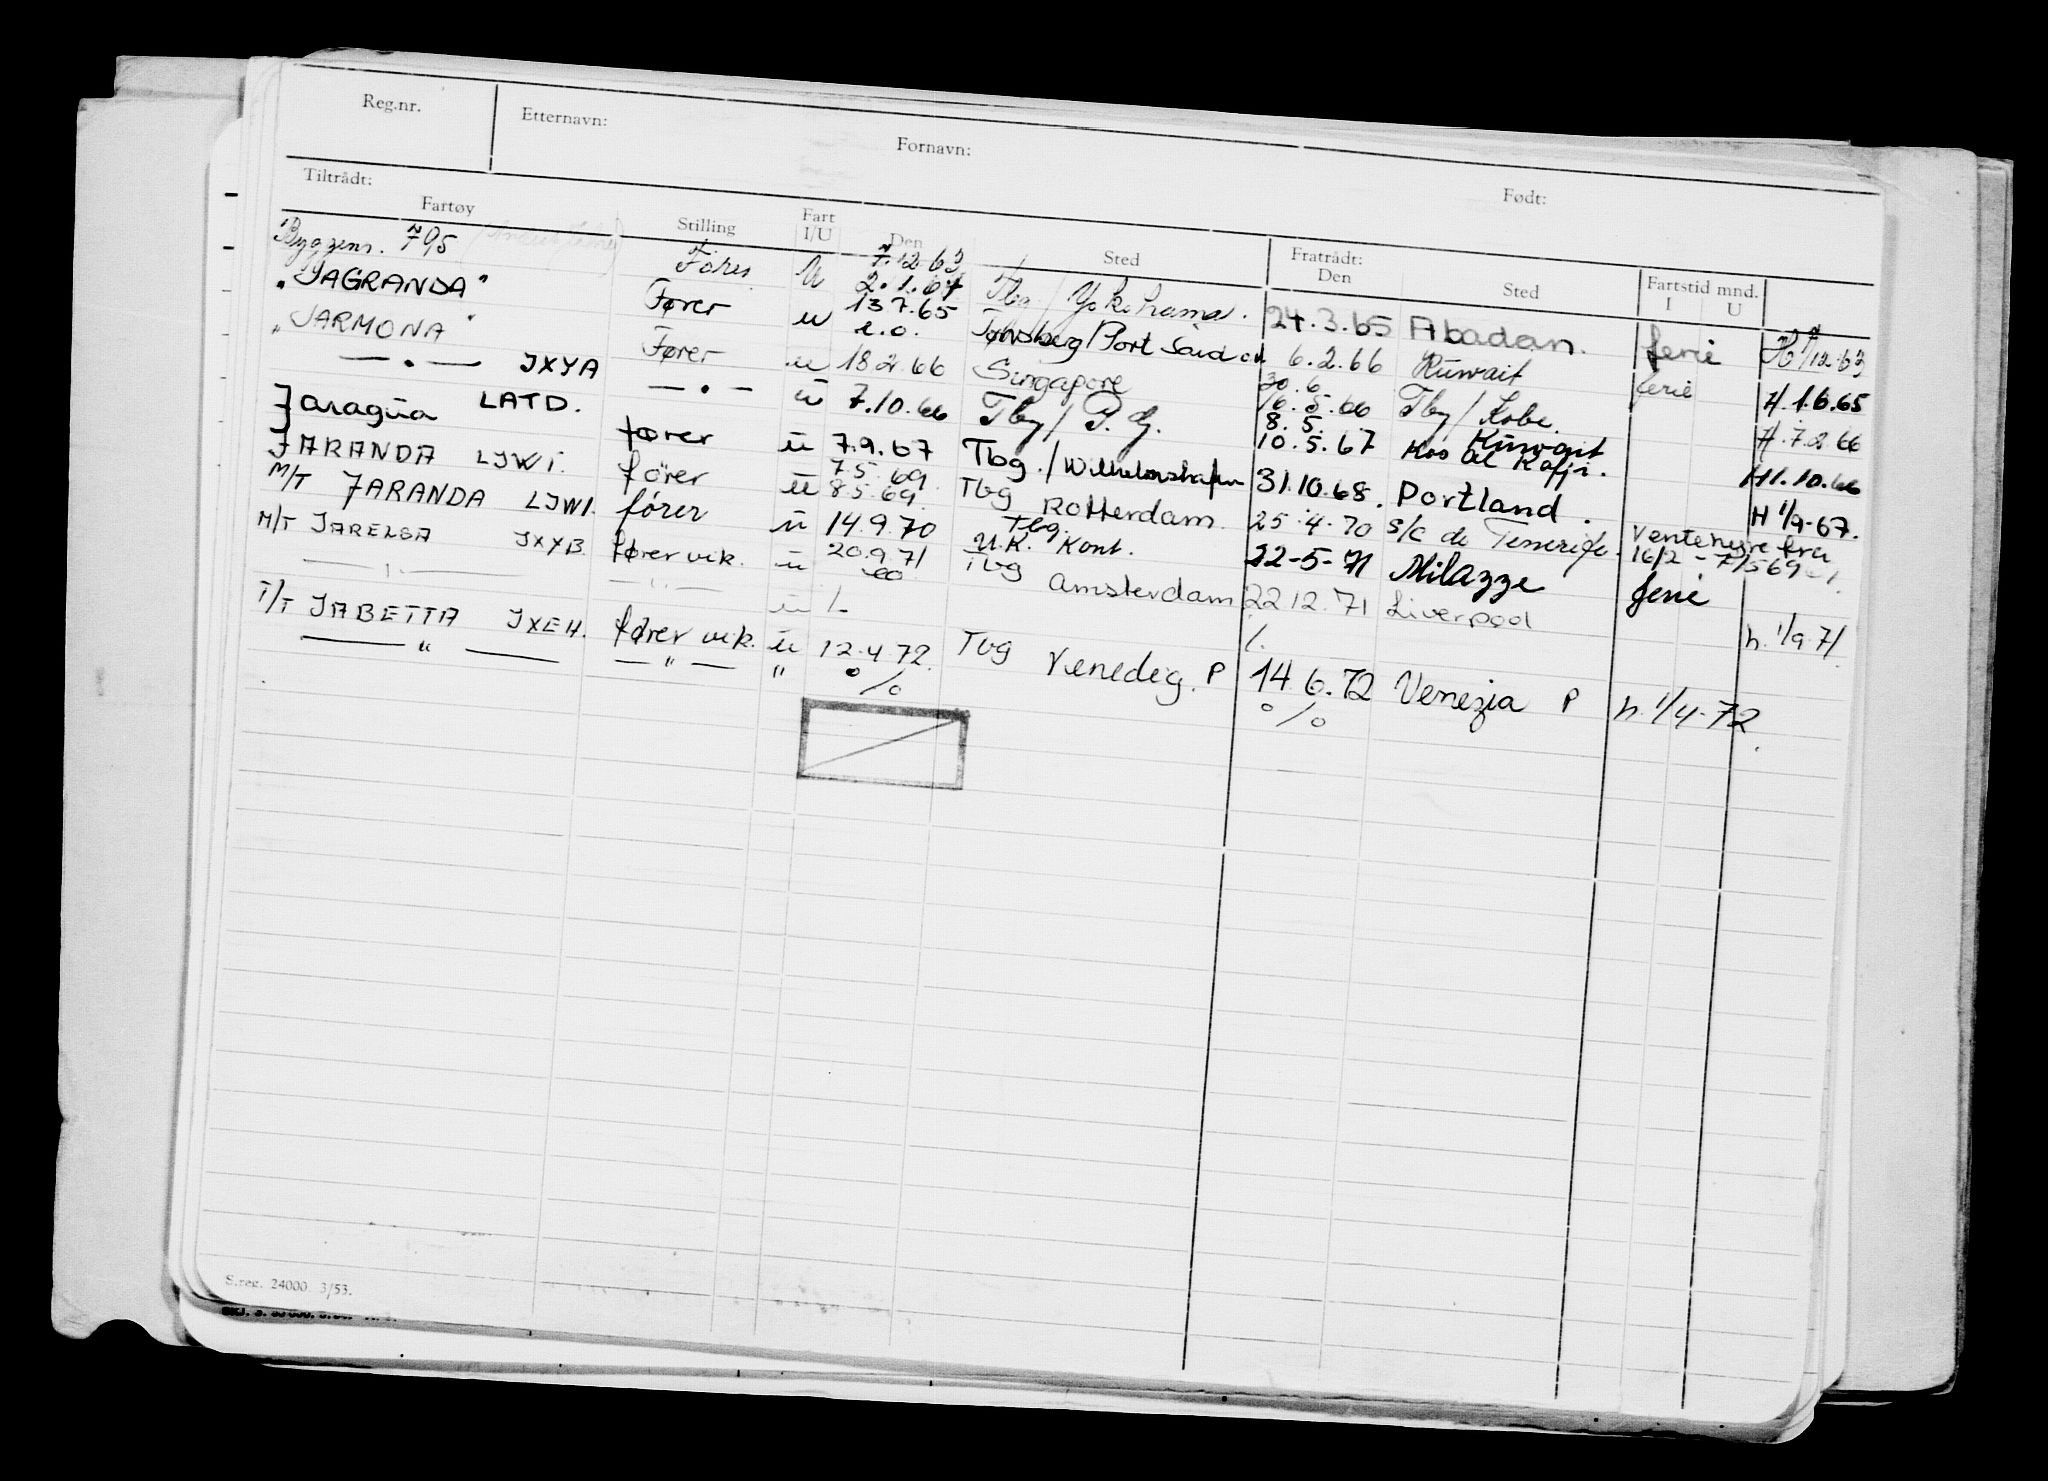 Reg.nr. Etternavn: Fornavn: Født:
Tiltrådt: Fratrådt:
Fartøy Stilling Fart I/U Den Sted Den Sted Fartstid mnd. I U
Byggenr. 795 Fører U 7.12.63 2.1.64 Tbg / Yokohama. 24.3.65 Abadan. ferie H 1/12-63
"JAGRANDA" Fører u 13.7.65 e.o. Tønsberg/Port Said 6.2.66 Kuwait ferie H.1.6.65
"JARMONA" Fører u 18.2.66 Singapore 30.6. 16.5.66 Tbg/Kobe. H.7.2.66
— " — JXYA — " — u 7.10.66 Tbg/P.G. 8.5. 10.5.67 Kuwait H1.10.66
Jaragua LATD. fører u 7.9.67 Tbg./Wilhelmshafen 31.10.68. Portland. H 1/9-67.
JARANDA LJWI. fører u 7.5.69. 8.5.69. Tbg Rotterdam. 25.4.70 S/C de Tenerife. Ventehyre fra 16/2 - 7/5 69
M/T JARANDA LJWI. fører u 14.9.70 Tbg. U.K. Kont. 22-5-71 Milazze ferie
M/T JARELSA JXYB. fører vik. u 20.9.71 Tbg Amsterdam 22.12.71 Liverpool h. 1/9 71
— " — — " — u /. /.
T/T JABETTA JXEH. fører vik. u 12.4.72. Tbg Venedig. P 14.6.72 Venezia P h. 1/4-72.
— " — — " — " % %
S.reg. 24000 3/53.